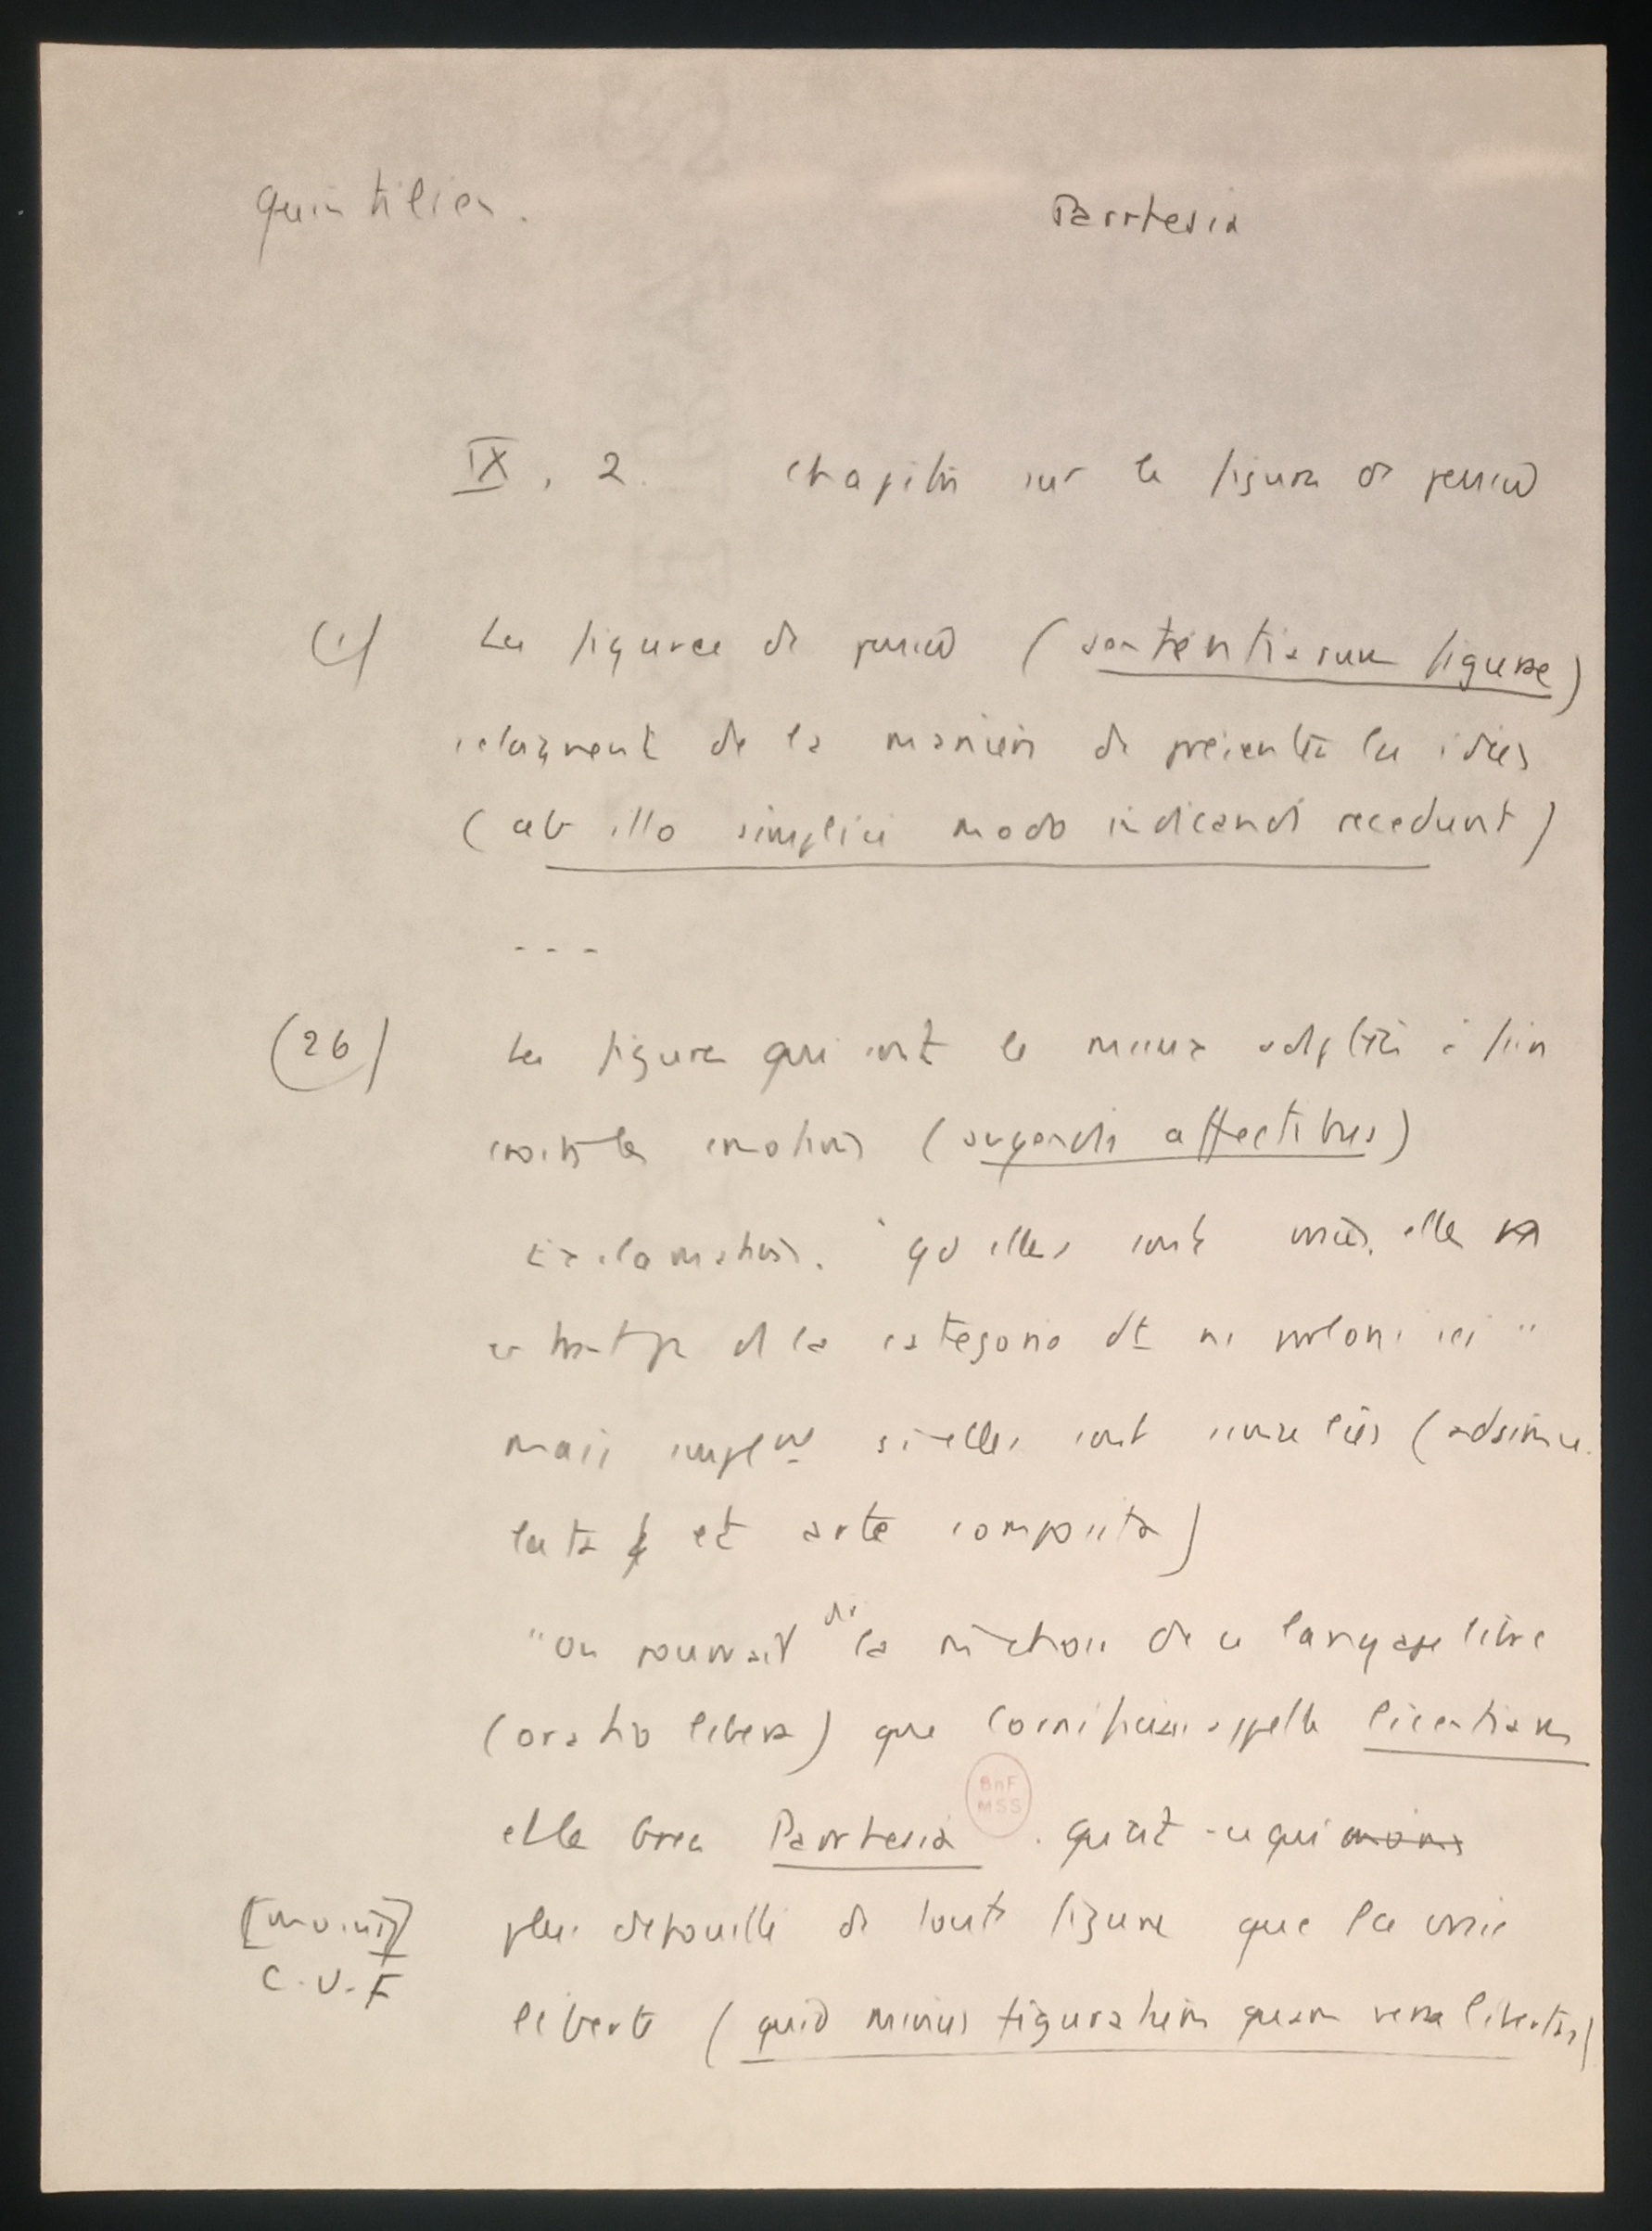 Quintilien.
Parrhesia
IX, 2. Chapitre sur les figures de pensée
(1) Les figures de pensée (sententiarum figurae)
de la manière de présenter les idées
(ab illo simplici modo indicandi recedunt)
---
(26) Les figures qui sont le mieux adaptées à
les émotions (augendis affectibus)
Exclamations. "qu'elles sont vraies, elles
de la catégorie dt ns parlons ici"
mais si elles sont simulées (adsimu
lata et arte composita)
"On pourrait dire la même chose de ce langage libre
(oratio libera) que Cornificius appelle licentiam
et les Grecs Parrhesia. Qu'est-ce qui moins
[moins] plus dépouillé de toute figure que la vraie
C.U.F
liberté (quid minus figuratum quam vera libertas)
BnF
MSS